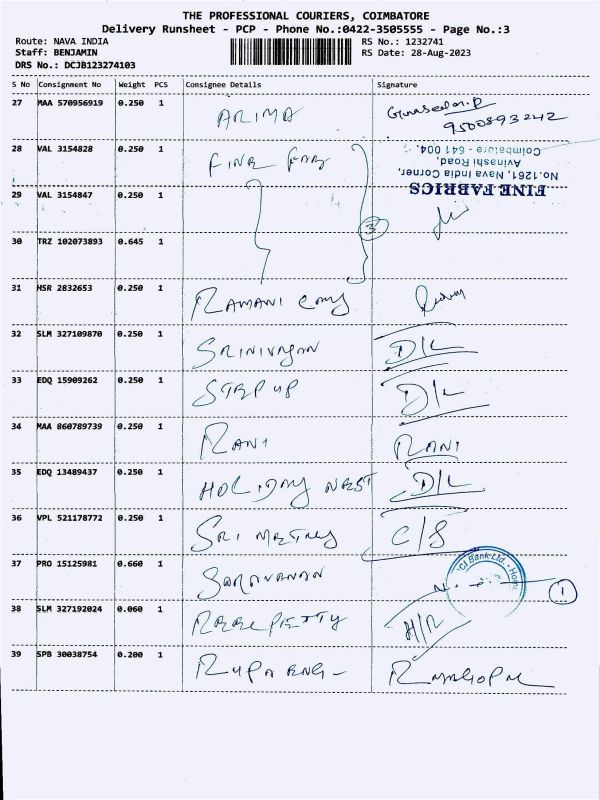 THE PROFESSIONAL COURIERS, COIMBATORE
Delivery Runsheet - PCP - Phone No.:0422-3505555 - Page No.:3
Route: NAVA INDIA
RS No.: 1232741
Staff: BENJAMIN
RS Date: 28-Aug-2023
DRS No.: DCJB123274103
S No Consignment No Weight PCS Consignee Details Signature
27 MAA 570956919 0.250 1 ARIMA
9500893242
28 VAL 3154828 0.250 1 FINE FAB
FINE FABRICS
No.1261, Nava India Corner,
Avinashi Road,
Coimbatore - 641 004.
29 VAL 3154847 0.250 1
3
30 TRZ 102073893 0.645 1
31 HSR 2832653 0.250 1 RAMANI
32 SLM 327109870 0.250 1 SRINIVASAN D/L
33 EDQ 15909262 0.250 1 STEP UP D/L
34 MAA 860789739 0.250 1 RANI RANI
35 EDQ 13489437 0.250 1 HOLIDAY NEST D/L
36 VPL 521178772 0.250 1 SRI C/S
37 PRO 15125981 0.660 1 SARAVANAN
CI Bank Ltd
1
38 SLM 327192024 0.060 1 H/R
39 SPB 30038754 0.200 1 RUPA ENG RAJAGOPAL